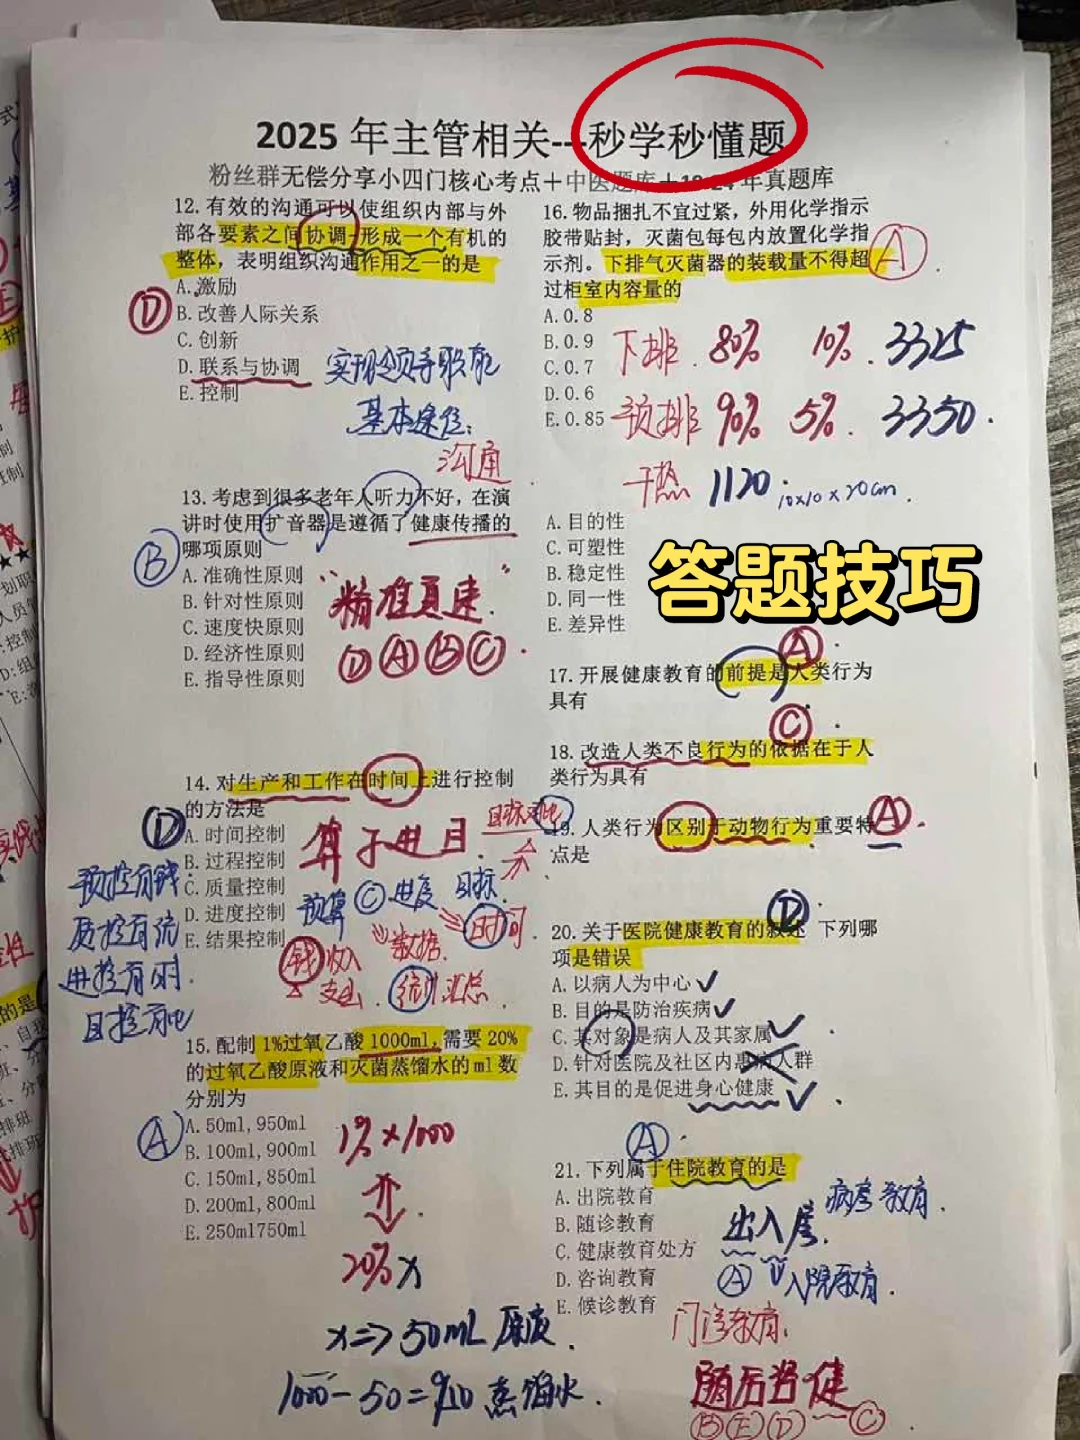 2025 年主管相关---秒学秒懂题
粉丝群无偿分享小四门核心考点＋中医题库＋18-24 年真题库
12. 有效的沟通可以使组织内部与外
部各要素之间协调-形成一个有机的
整体，表明组织沟通作用之一的是
A. 激励
D
B. 改善人际关系
C. 创新
D. 联系与协调
E. 控制
实现领导职能
基本途径：
沟通
13. 考虑到很多老年人听力不好，在演
讲时使用扩音器是遵循了健康传播的
哪项原则
B
A. 准确性原则
B. 针对性原则
C. 速度快原则
D. 经济性原则
E. 指导性原则
“精准真速”
D A B C
14. 对生产和工作在时间上进行控制
的方法是
D
A. 时间控制
B. 过程控制
C. 质量控制
D. 进度控制
E. 结果控制
目标对比
预算 C 进度 目标
钱 收入 数据 时间
支出 统计汇总
预控有钱
质控有流
进控有时
目控有比
15. 配制 1%过氧乙酸 1000ml，需要 20%
的过氧乙酸原液和灭菌蒸馏水的 ml 数
分别为
A
A. 50ml, 950ml
B. 100ml, 900ml
C. 150ml, 850ml
D. 200ml, 800ml
E. 250ml750ml
1% × 1000
20% x
x => 50mL 原液.
1000 - 50 = 950 蒸馏水.
16. 物品捆扎不宜过紧，外用化学指示
胶带贴封，灭菌包每包内放置化学指
示剂。下排气灭菌器的装载量不得超
过柜室内容量的
A
A. 0.8
B. 0.9
C. 0.7
D. 0.6
E. 0.85
下排. 80% 10%. 3325
预排 90% 5%. 3350.
干热 1120. 10×10×20cm.
A. 目的性
C. 可塑性
B. 稳定性
D. 同一性
E. 差异性
答题技巧
A
17. 开展健康教育的前提是人类行为
具有
C
18. 改造人类不良行为的依据在于人
类行为具有
19. 人类行为区别于动物行为重要特
A
点是
D
20. 关于医院健康教育的叙述 下列哪
项是错误
A. 以病人为中心
B. 目的是防治疾病
C. 其对象是病人及其家属
D. 针对医院及社区内患病人群
E. 其目的是促进身心健康
A
21. 下列属于住院教育的是
A. 出院教育
B. 随诊教育
C. 健康教育处方
D. 咨询教育
E. 候诊教育
病房教育.
出入房.
A 入院教育.
门诊教育.
随后咨健
B E D C